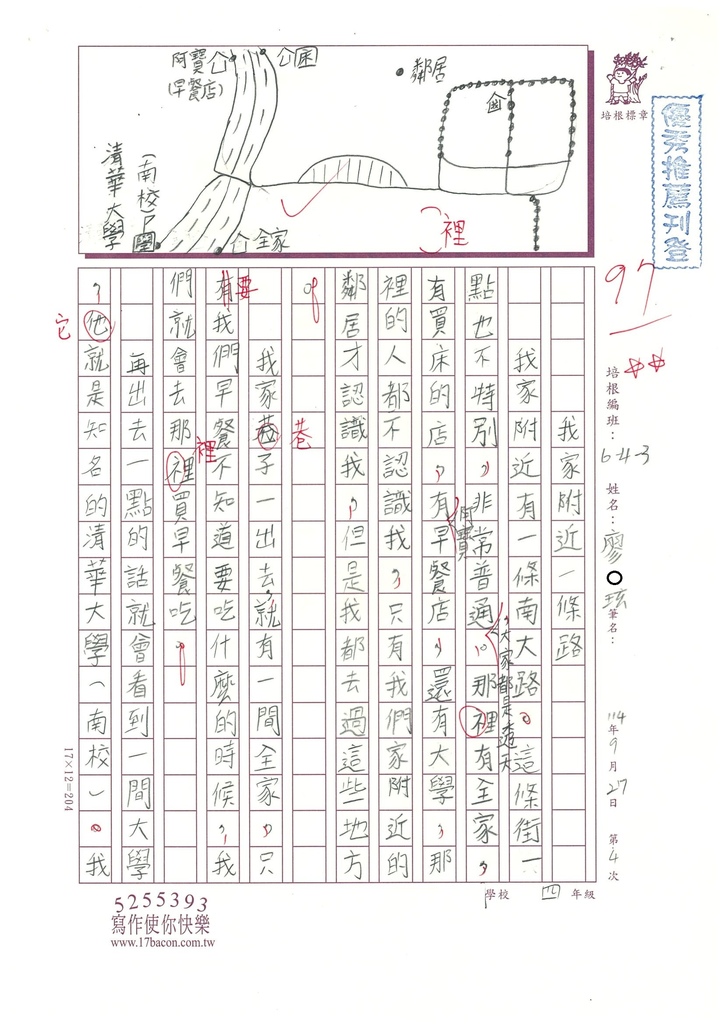 阿寶
(早餐店)
公園
鄰居
清華大學
(南校)
全家
裡
培根標章
優秀推薦刊登
97
培根編班：643
姓名：廖○玹
筆名：
114年9月27日 第4次
學校 四 年級
我家附近一條路
我家附近有一條南大路。這條街一
點也不特別，非常普通，大家都是透天。那裡有全家，
有買床的店，有阿寶早餐店，還有大學，那
裡的人都不認識我，只有我們家附近的
鄰居才認識我，但是我都去過這些地方
。
我家巷子一出去，就有一間全家，只
巷
有我們早餐不知道要吃什麼的時候，我
要
們就會去那裡買早餐吃。
裡
再出去一點的話就會看到一間大學
，他就是知名的清華大學(南校)。我
它
17×12=204
5255393
寫作使你快樂
www.17bacon.com.tw